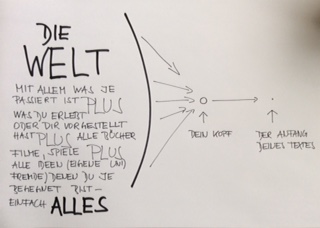 DIE
WELT
MIT ALLEM WAS JE
PASSIERT IST PLUS
WAS DU ERLEBT
ODER DIR VORGESTELLT
HAST PLUS ALLE BÜCHER
FILME, SPIELE PLUS
ALLE IDEEN (EIGENE UND
FREMDE) DENEN DU JE
BEGEGNET BIST –
EINFACH ALLES
DEIN KOPF
DER ANFANG
DEINES TEXTES